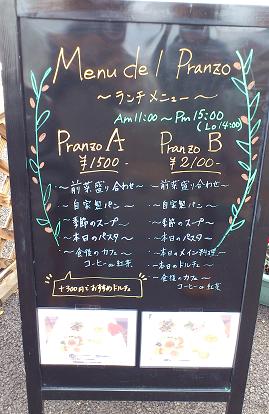 Menu del Pranzo
～ランチメニュー～
Am 11:00 ～ Pm 15:00
(Lo 14:00)
Pranzo A
¥1500-
～前菜盛り合わせ～
～自家製パン～
～季節のスープ～
～本日のパスタ～
～食後のカフェ
コーヒーor紅茶
+300円でおすすめドルチェ
Pranzo B
¥2100-
～前菜盛り合わせ～
～自家製パン～
～季節のスープ～
～本日のパスタ～
～本日のメイン料理～
～本日のドルチェ～
～食後のカフェ
コーヒーor紅茶